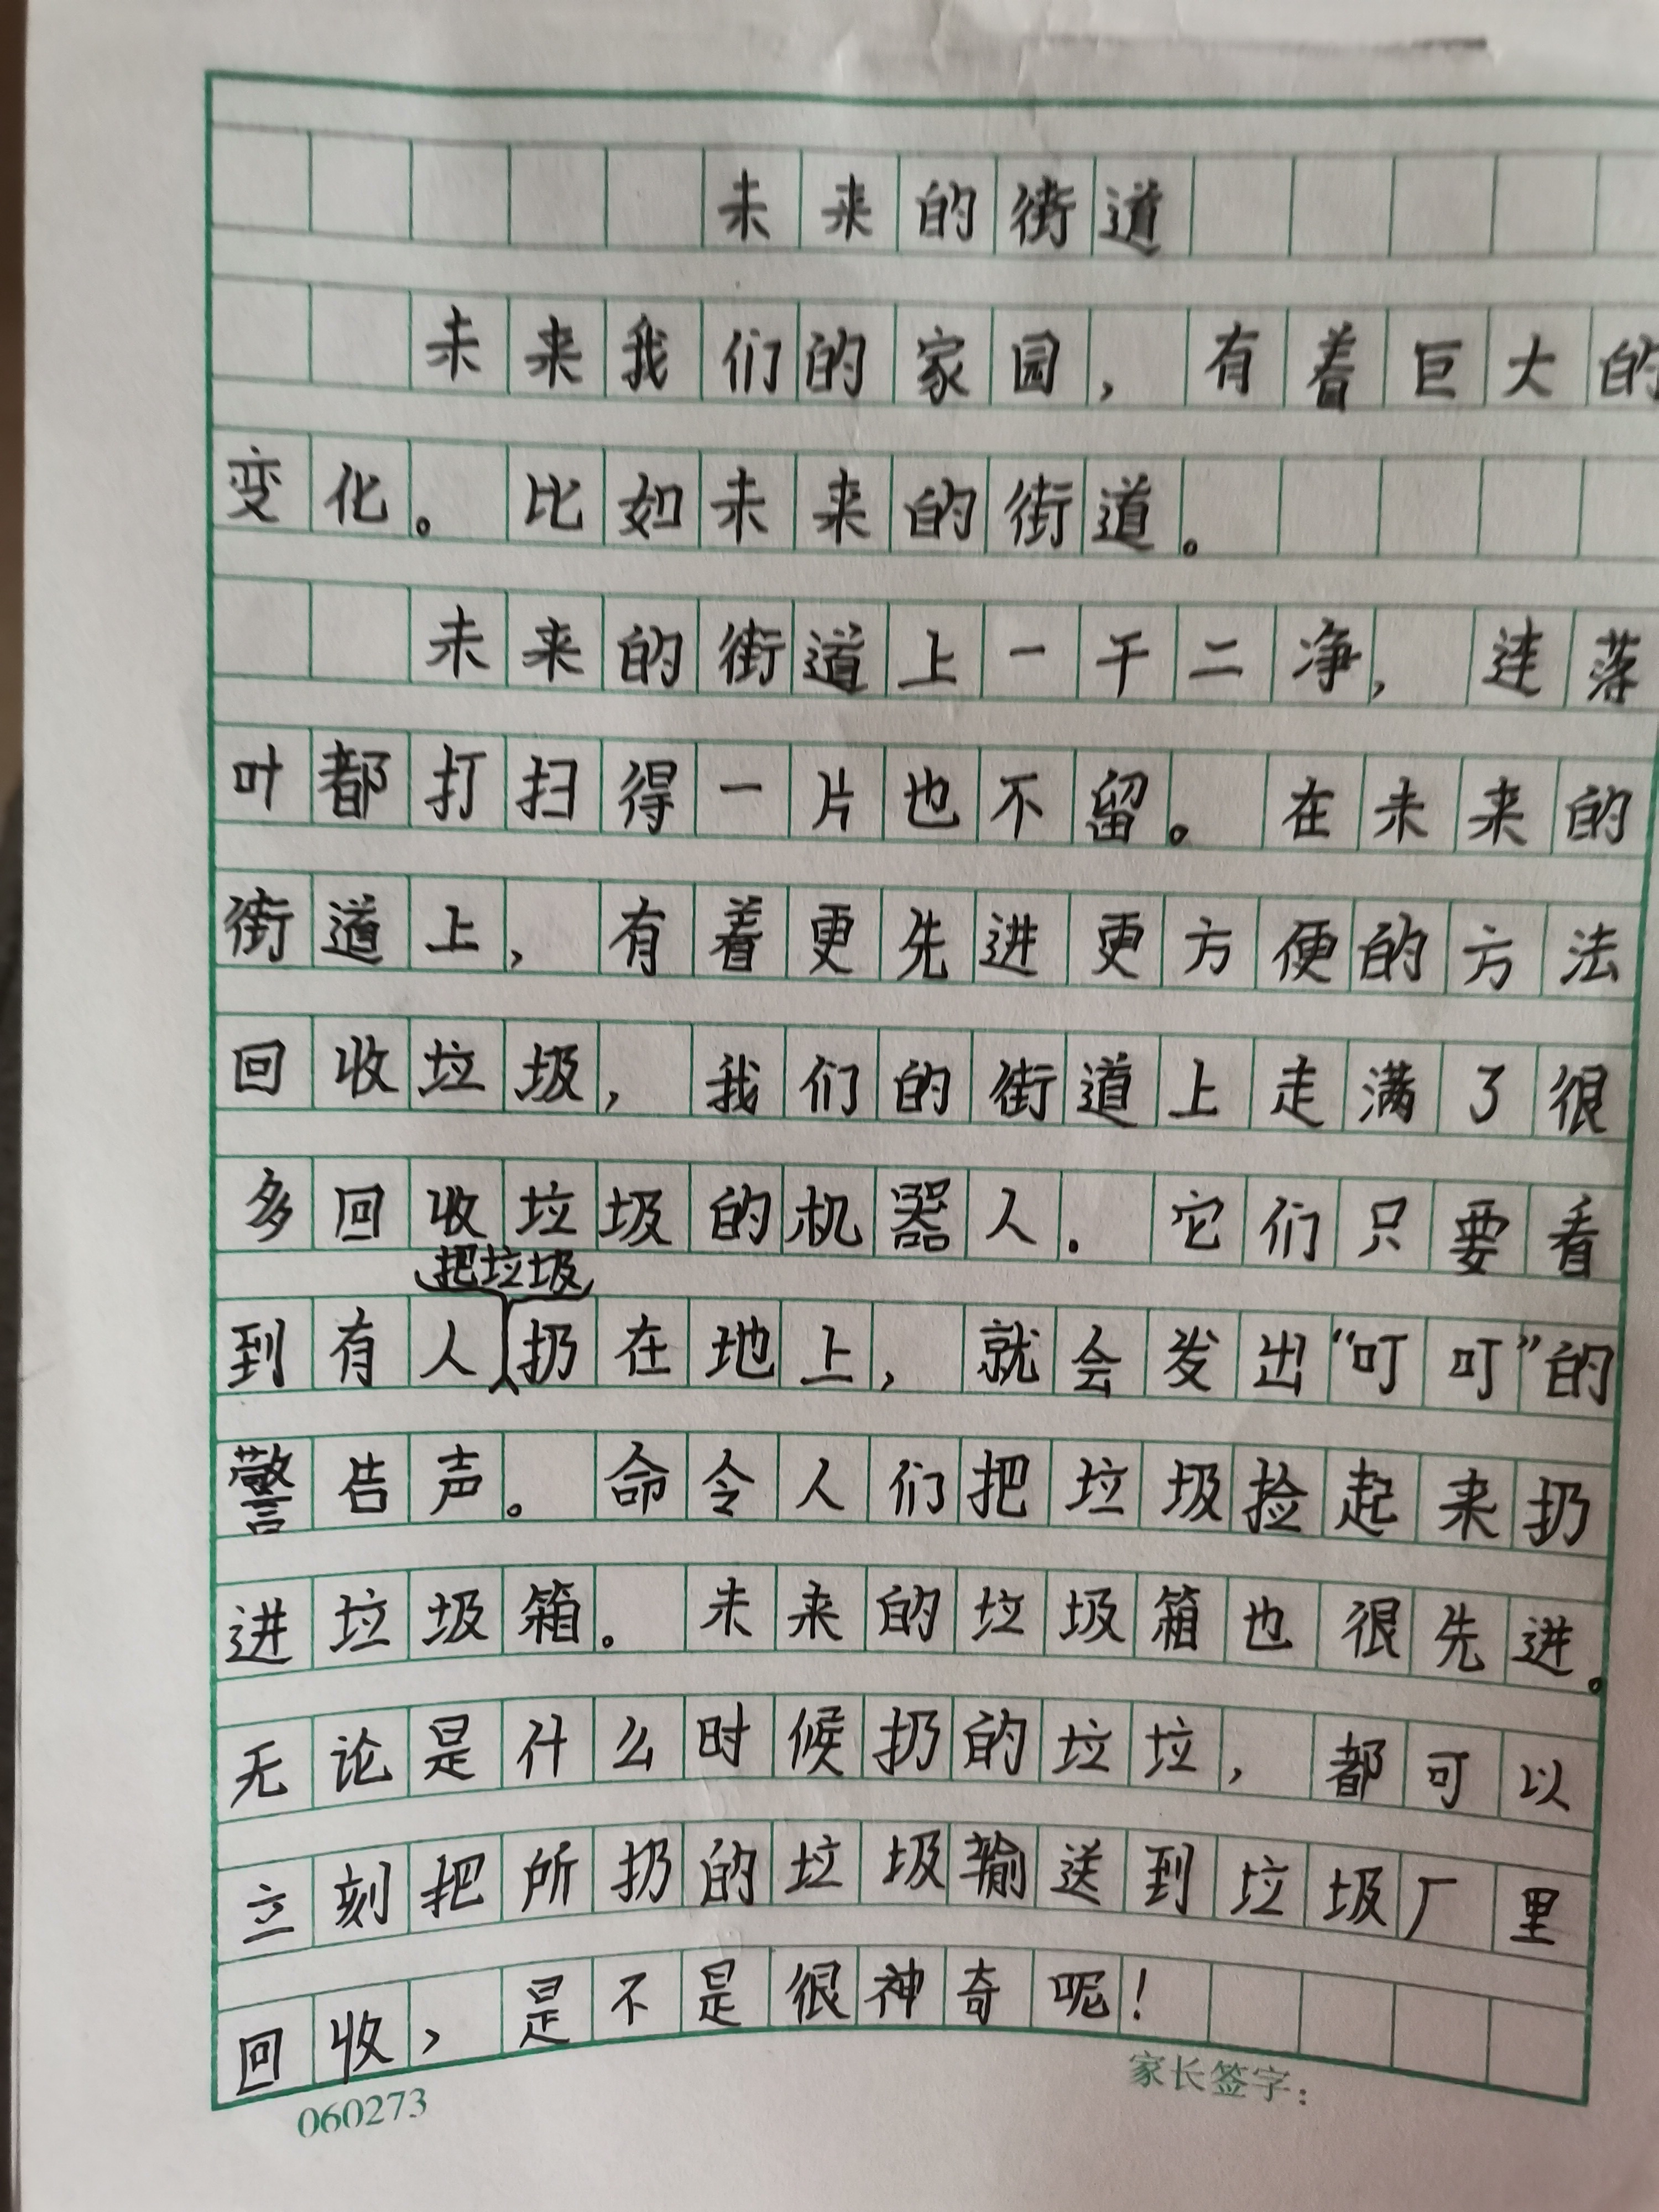 未来的街道
未来我们的家园，有着巨大的
变化。比如未来的街道。
未来的街道上一干二净，连落
叶都打扫得一片也不留。在未来的
街道上，有着更先进更方便的方法
回收垃圾，我们的街道上走满了很
多回收垃圾的机器人．它们只要看
把垃圾
到有人扔在地上，就会发出“叮叮”的
警告声。命令人们把垃圾捡起来扔
进垃圾箱。未来的垃圾箱也很先进。
无论是什么时候扔的垃垃，都可以
立刻把所扔的垃圾输送到垃圾厂里
回收，是不是很神奇呢！
家长签字：
060273